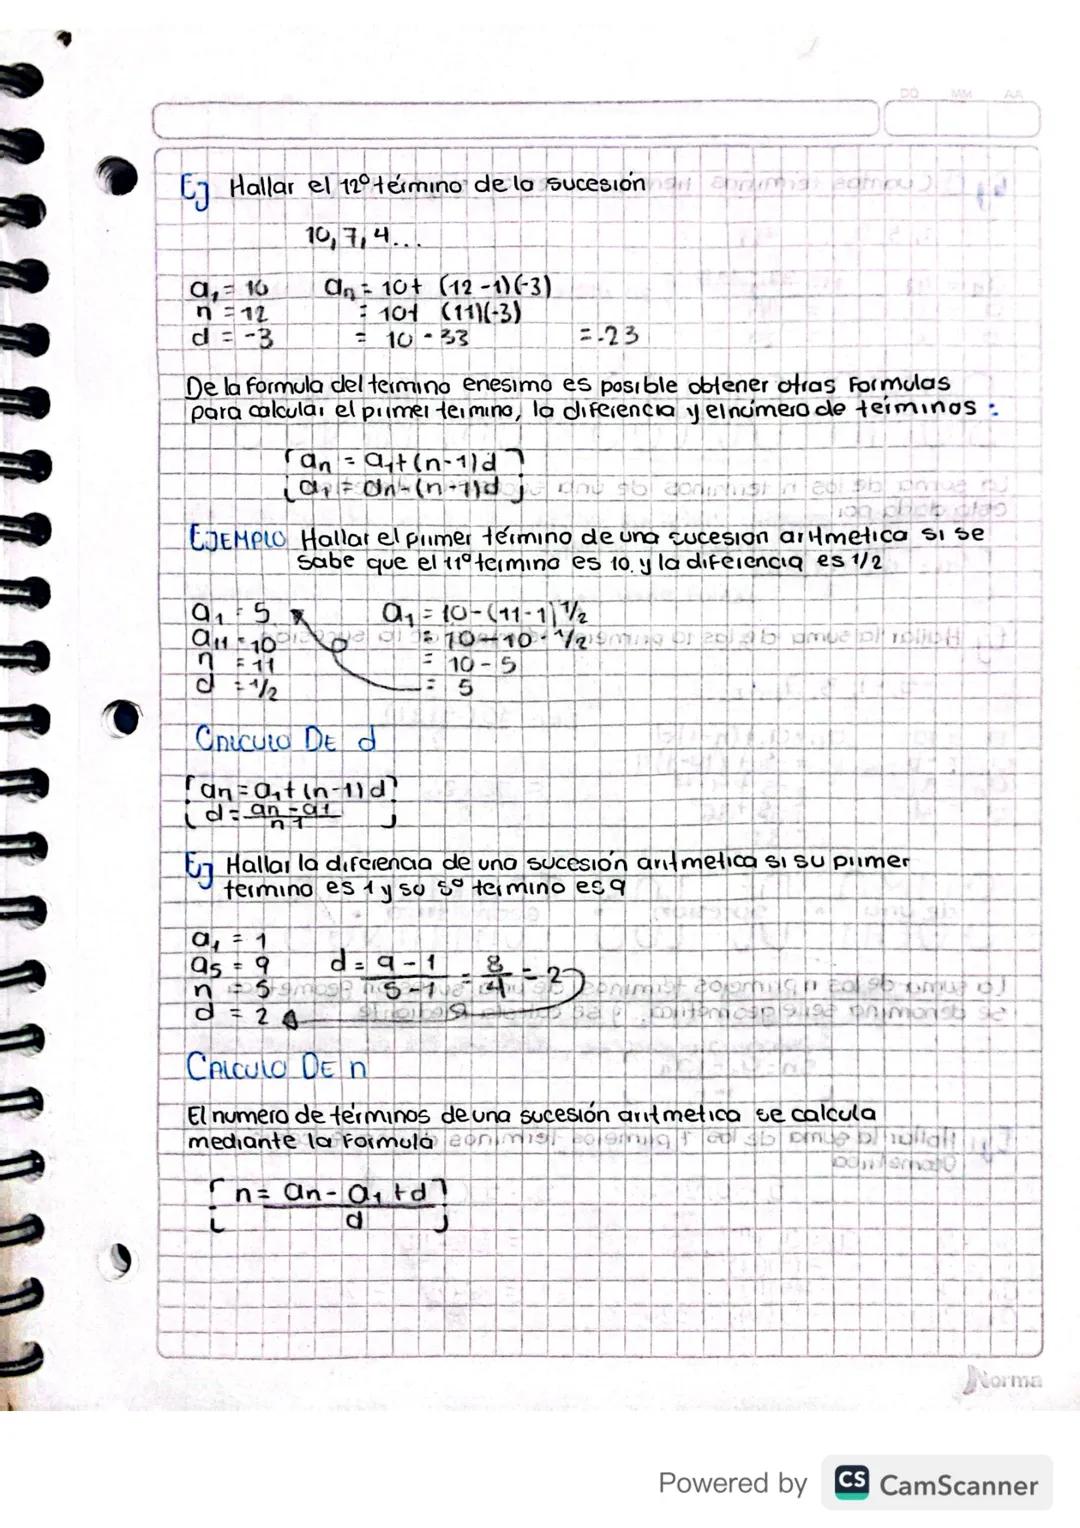 DD MM AA
Ej Hallar el 12º término de la sucesión
10, 7, 4...
a₁ = 10 an = 10 + (12-1)(-3)
n = 12 = 10 + (11)(-3)
d = -3 = 10 - 33 = -23
De la formula del termino enesimo es posible obtener otras formulas
para calcular el primer termino, la diferencia y el número de términos :
an = a₁ + (n-1)d
a₁ = an - (n-1)d
EJEMPLO Hallar el primer término de una sucesion aritmetica si se
sabe que el 11º termino es 10. y la diferencia es 1/2
a₁ = 5 a₁ = 10-(11-1) 1/2
a11 = 10 = 10 - 10 · 1/2
n = 11 = 10 - 5
d = 1/2 = 5
CALCULO DE d
an = a₁ + (n-1)d
d = an - a1
n-1
Ej Hallar la diferencia de una sucesión aritmetica si su primer
termino es 1 y su 5º termino es 9
a₁ = 1
a5 = 9 d = 9-1 = 8 = 2
n = 5 5-1 4
d = 2
CALCULO DE n
El numero de términos de una sucesión aritmetica se calcula
mediante la formula
n = an - a₁ + d
d
Norma
Powered by CS CamScanner